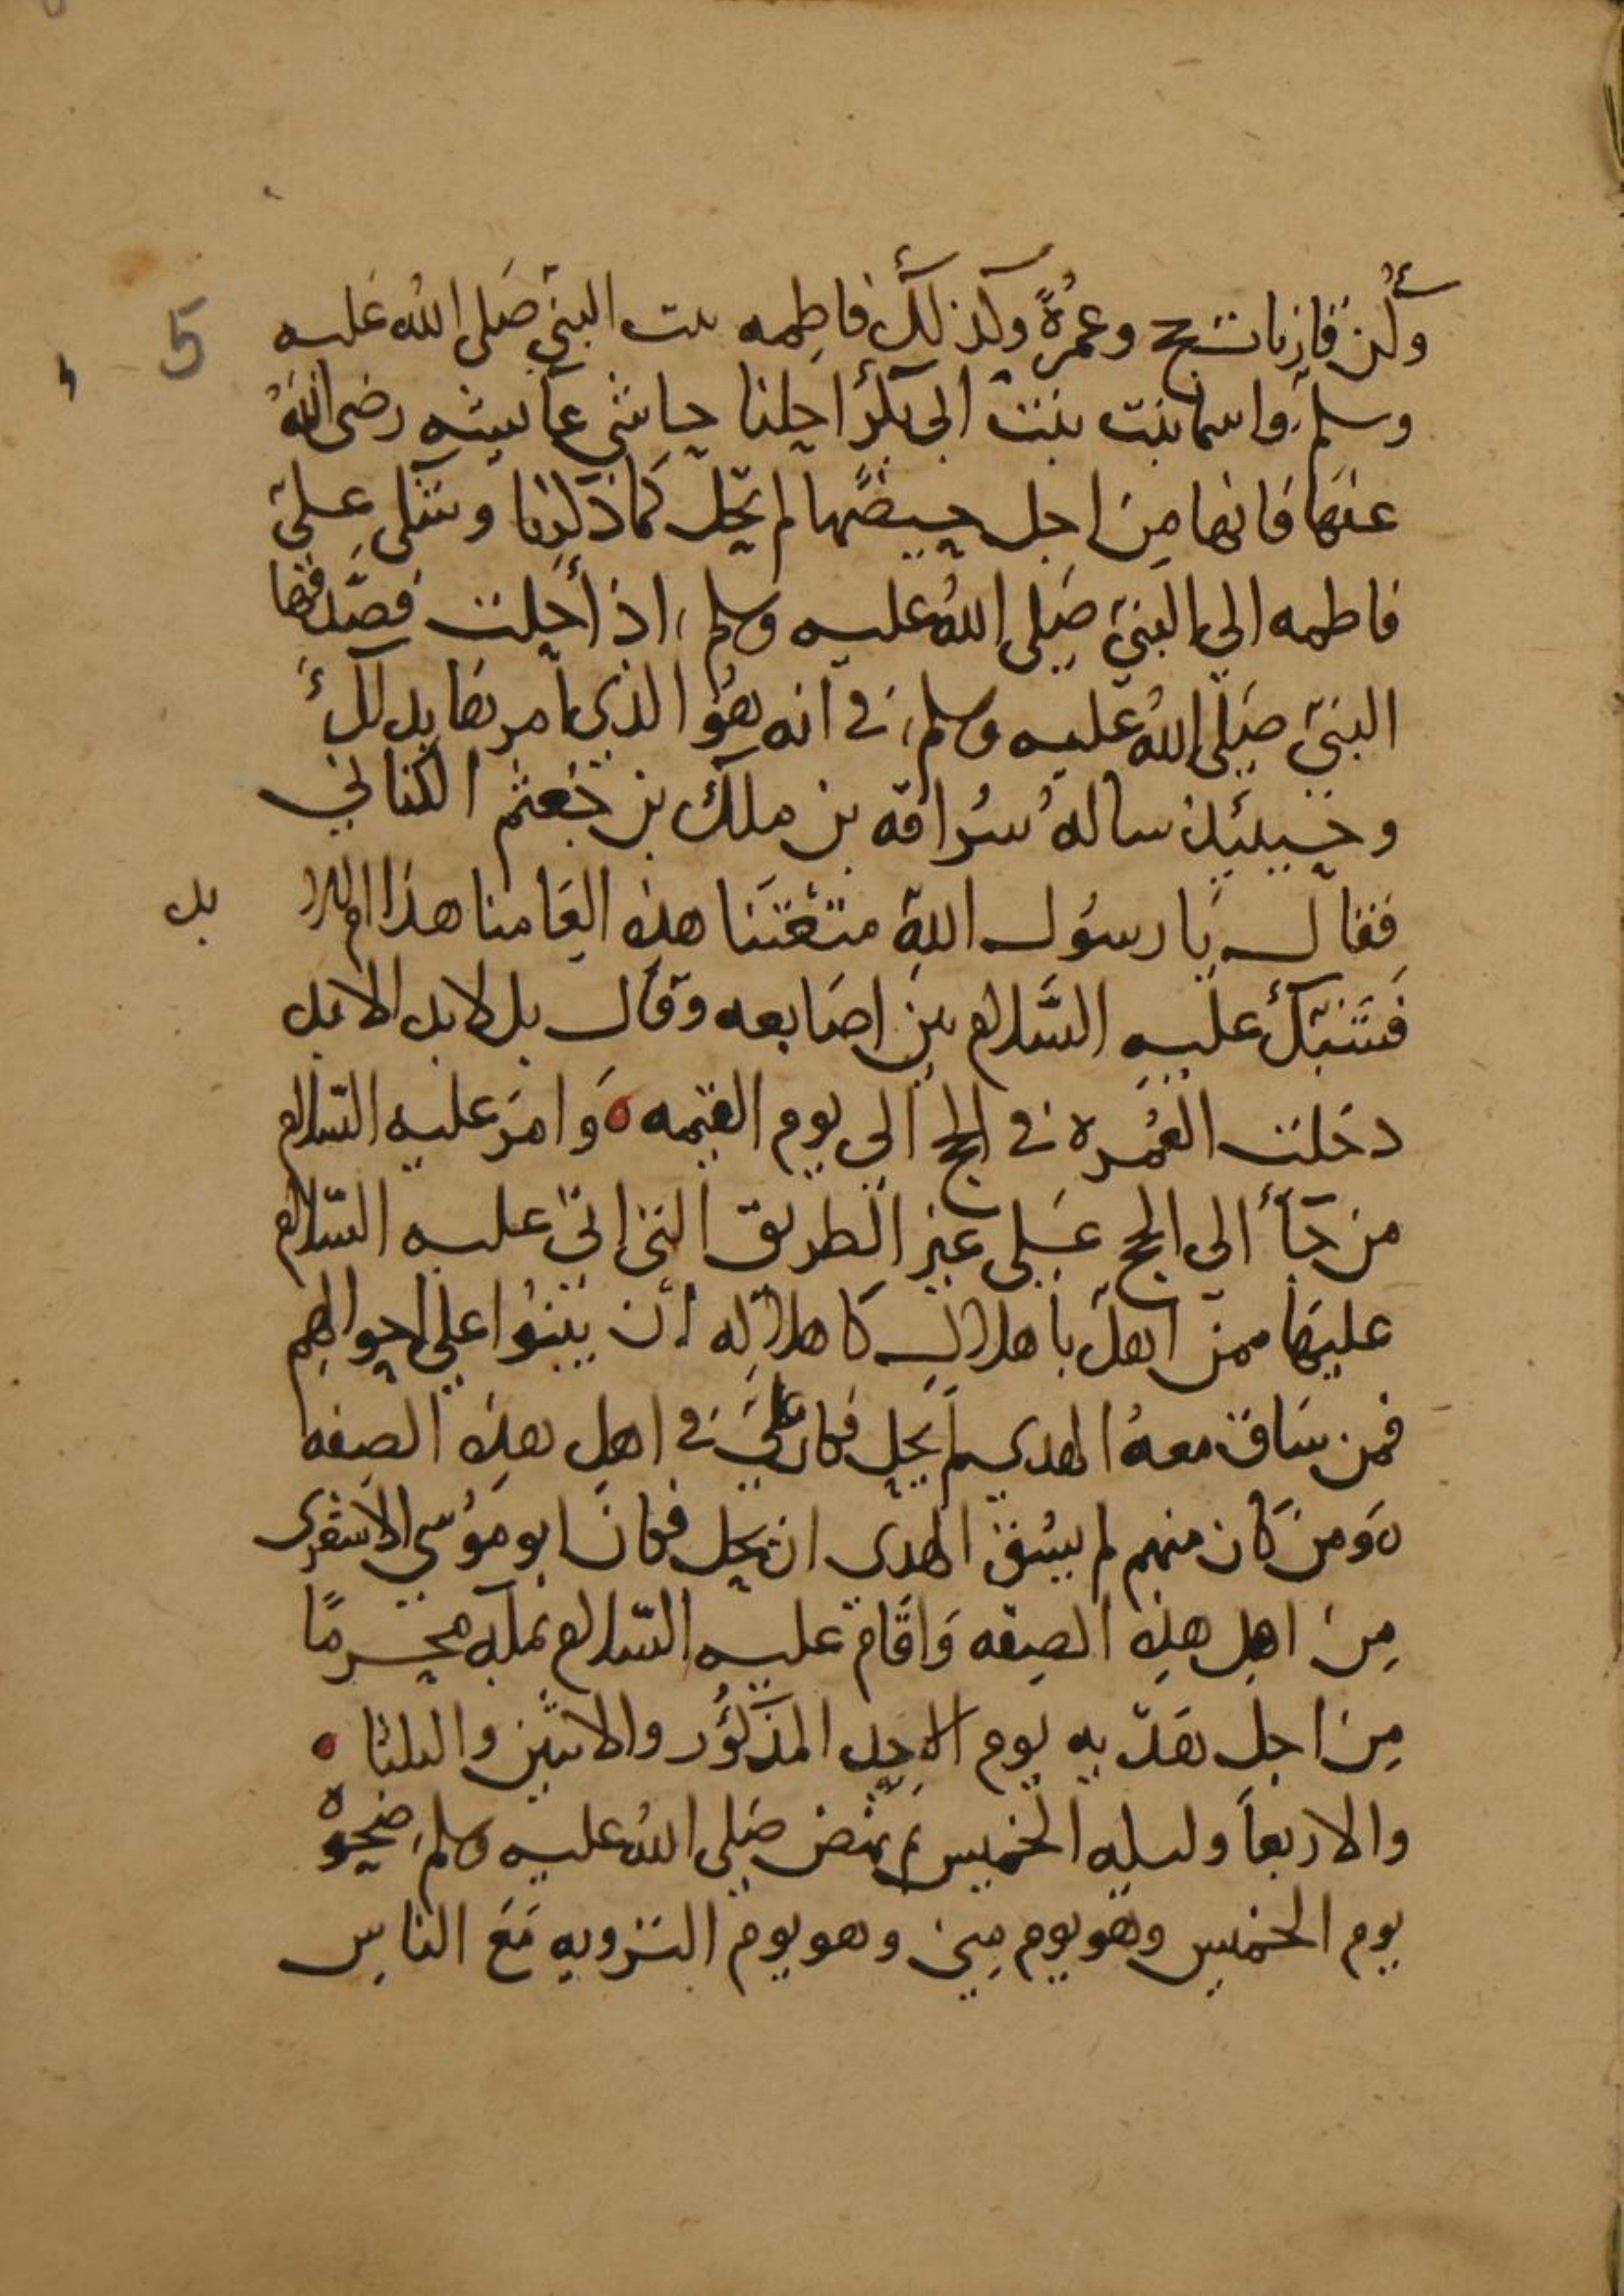 وكن قارنات حج وعمرة وكذلك فاطمه بنت النبي صلى الله عليه
وسلم واسما بنت بنت ابي بكر احللنا حاشى عائشه رضى الله
عنها فانها من اجل حيضها لم تحل كما ذكرنا وشكى على
فاطمه الى النبي صلى الله عليه وسلم اذ أحلت فصدقها
النبي صلى الله عليه وسلم في انه هو الذي امرها بذلك
وحينئذ ساله سراقه بن ملك بن جعثم الكناني
فقال يا رسول الله متعتنا هذه العامنا هذا ام للابد
بل
فشبك عليه السلام بين اصابعه وقال بل لابد الابد
دخلت العمره في الحج الى يوم القيمه وامر عليه السلام
من جأ الى الحج على غير الطريق التي اتى عليه السلام
عليها ممن اهل باهلال كاهلاله ان يثبتوا على احوالهم
فمن ساق معه الهدي لم يحل فكان علي في اهل هذه الصفه
ومن كان منهم لم يسق الهدى ان يحل فكان ابو موسى الاشعرى
من اهل هذه الصفه واقام عليه السلام بمكه محرما
من اجل هديه يوم الاحد المذكور والاثنين والثلثا
والاربعا وليله الخميس ثم نهض صلى الله عليه وسلم ضحوه
يوم الخميس وهو يوم منى وهو يوم الترويه مع الناس
5